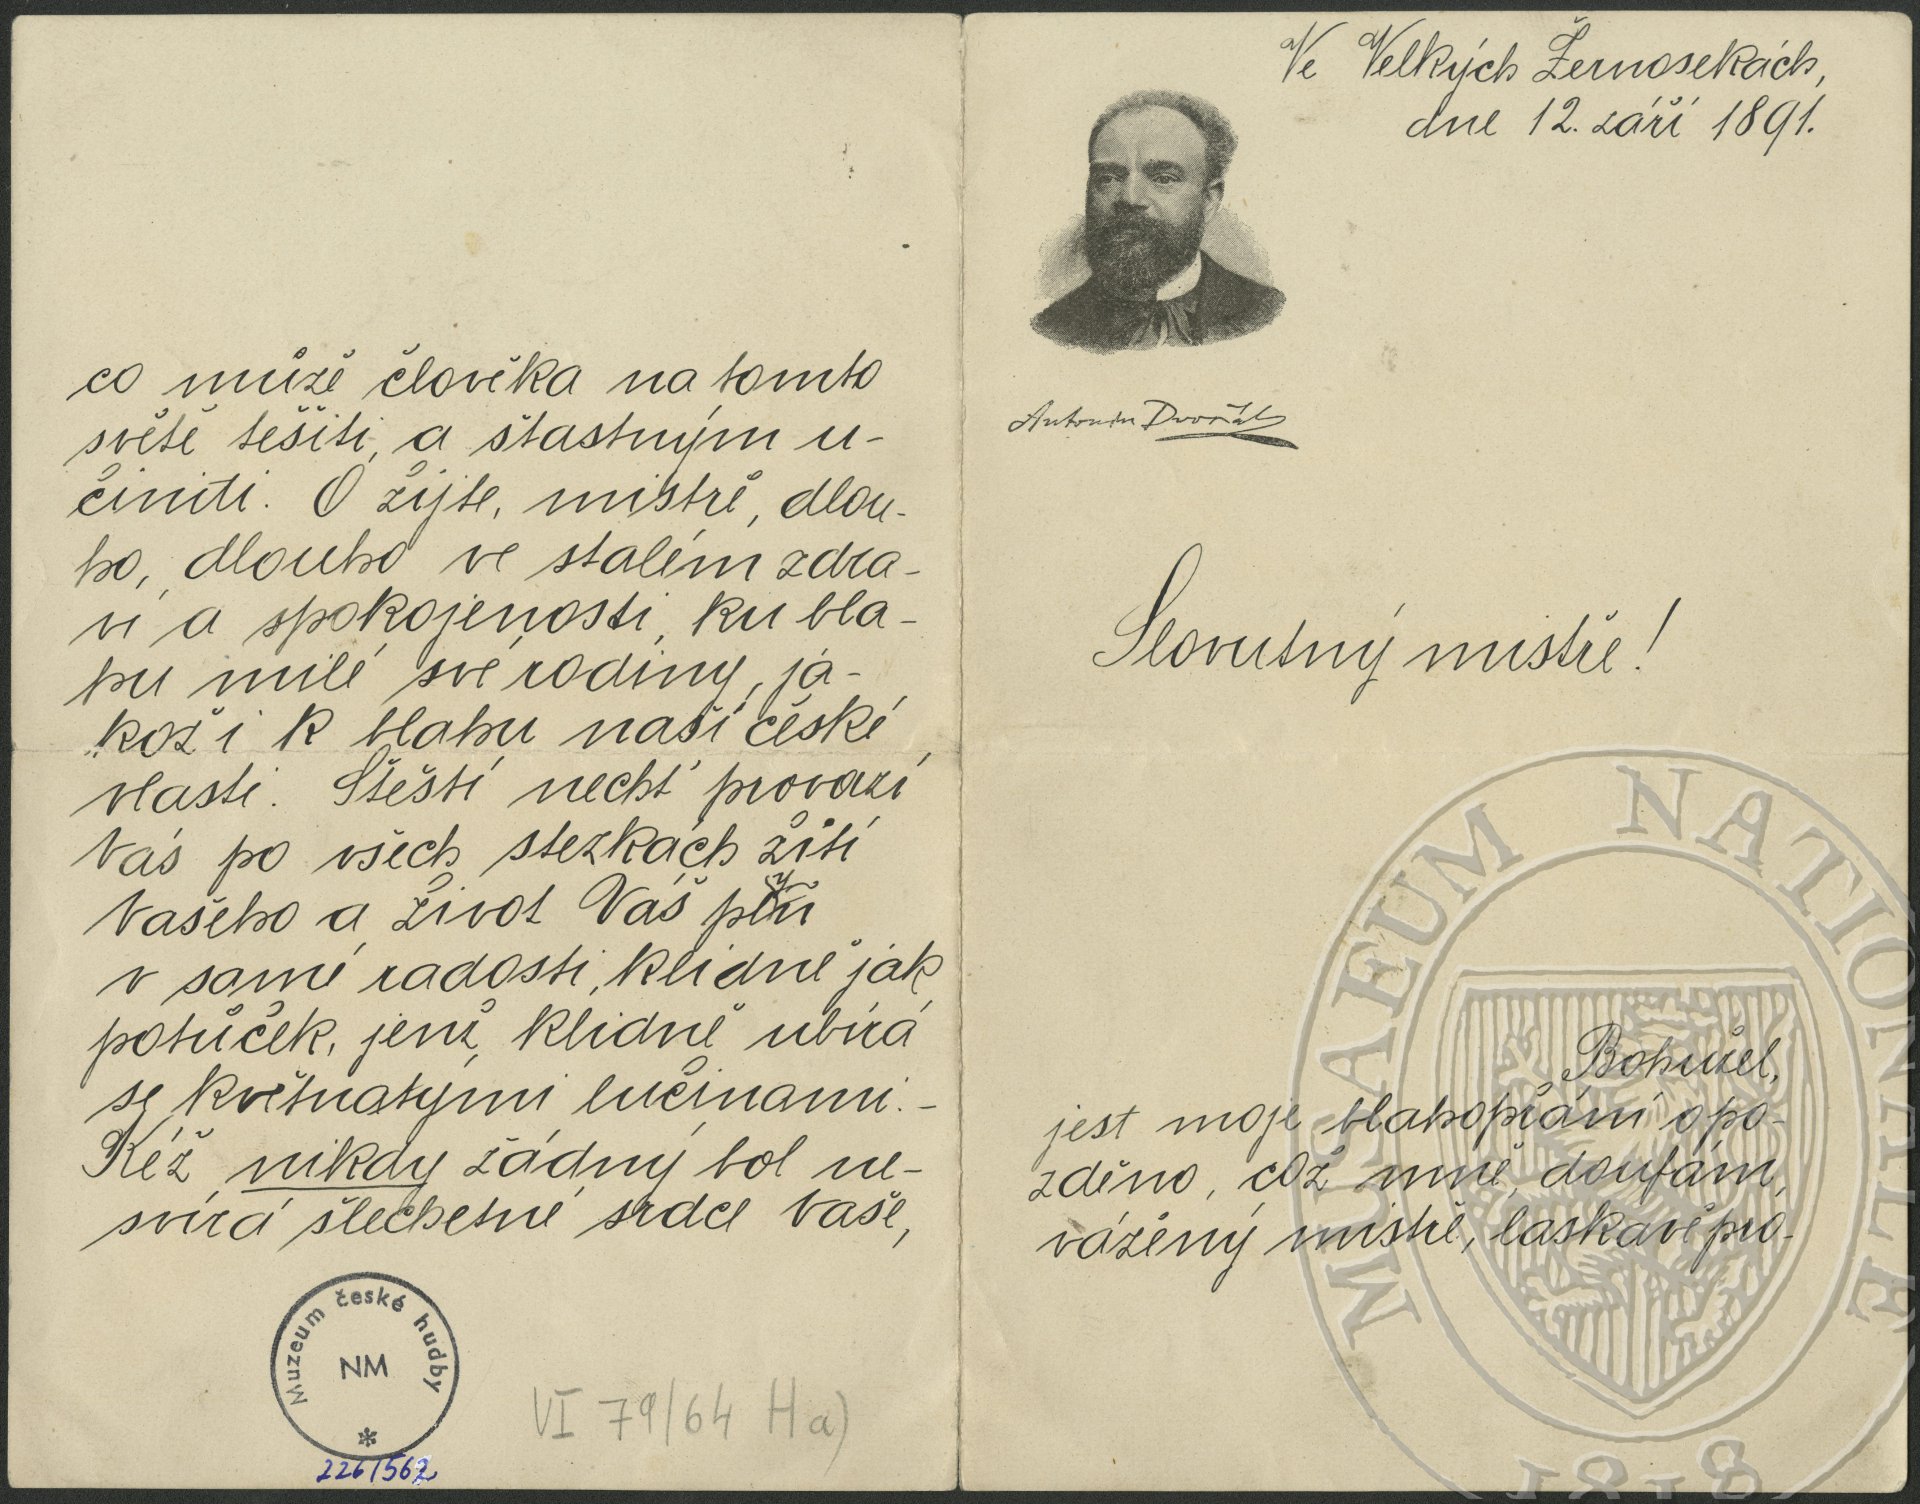 co může člověka na tomto
světě těšiti, a šťastným u-
činiti. O žijte, mistře, dlou-
ho, dlouho ve stálém zdra-
ví a spokojenosti, ku bla-
hu milé své rodiny, ja-
kož i k blahu naší české
vlasti. Štěstí nechť provází
Vás po všech stezkách žití
Vašeho a život Váš plyň
v samé radosti, klidně jak
potůček, jenž klidně ubírá
se květnatými lučinami. -
Kéž nikdy žádný bol ne-
svírá šlechetné srdce Vaše,
Muzeum české hudby
NM
226/562
VI 79/64 Ha)
Ve Velkých Žernosekách,
dne 12. září 1891.
Antonín Dvořák
Slovutný mistře!
Bohužel,
jest moje blahopřání opo-
zděno, což mně, doufám,
vážený mistře, laskavě pro-
MUSAEUM NATIONALE
1818